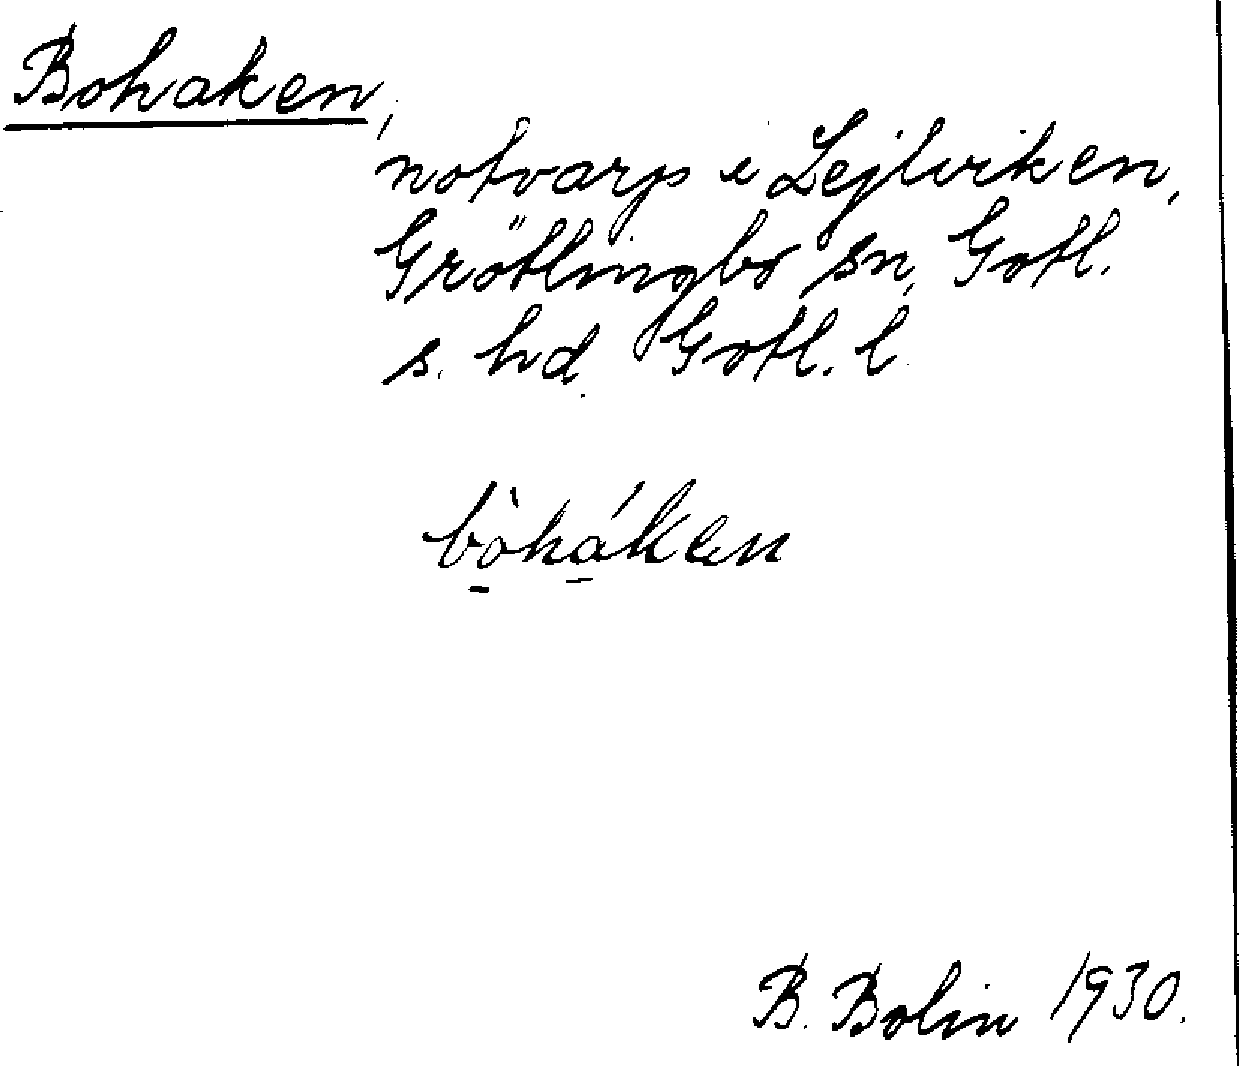 Bohaken,
notvarp i Lejlviken,
Grötlingbo sn, Gotl.
s. hd. Gotl. l.
bò̱há̱ken
B. Bolin 1930.